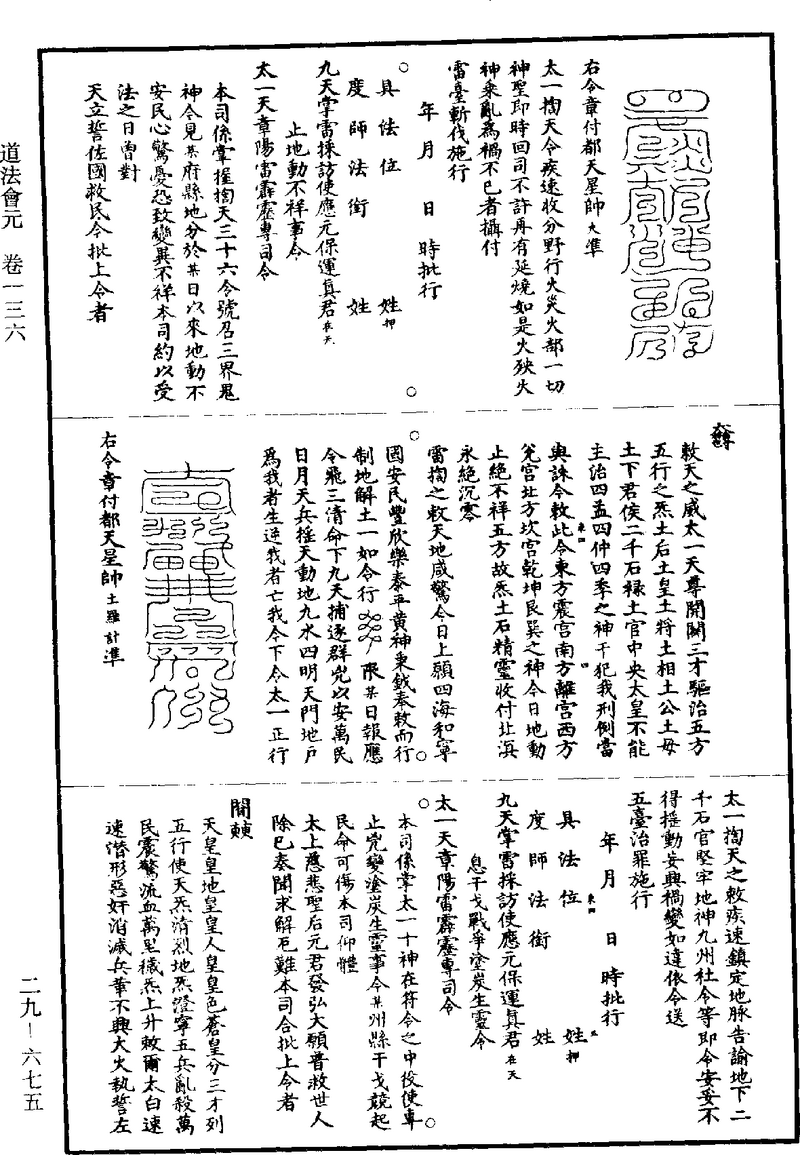 右令章付都天星帥火準
太一掏天令疾速收分野行火災火部一切
神聖即時回司不許再有延燒如是火殃火
神乘亂為禍不已者攝付
雷臺斬伐施行
年月 日 時批行
具法位 姓押
度師法銜 姓
九天掌雷採訪使應元保運真君在天
止地動不祥事令
太一天章陽雷霹靂專司令
本司係掌握掏天三十六令號召三界鬼
神令見某府縣地分於某日以來地動不
安民心驚憂恐致變異不祥本司約以受
法之日曾對
天立誓佐國救民令批上令者
敕天之威太一天尊開闢三才驅治五方
五行之炁土后土皇土將土相土公土母
土下君侯二千石祿土官中央太皇不能
主治四孟四仲四季之神干犯我刑例當
與誅令敕此令東方震宮南方離宮西方
兌宮北方坎宮乾坤艮巽之神今日地動
止絕不祥五方故炁土石精靈收付北溟
永絕沉零
雷掏之敕天地咸驚今日上願四海和寧
國安民豐欣樂泰平黃神秉鉞奉敕而行
制地解土一如令行 限某日報應
令飛三清命下九天捕逐群兇以安萬民
日月天兵搖天動地九水四明天門地戶
為我者生逆我者亡我令下令太一正行
右令章付都天星帥土羅計準
太一掏天之敕疾速鎮定地脉告諭地下二
千石官堅牢地神九州社令等即令安妥不
得搖動妄興禍變如違依令送
五臺治罪施行
年月 日 時批行
具法位 姓押
度師法銜 姓
九天掌雷採訪使應元保運真君在天
息干戈戰爭塗炭生靈令
太一天章陽雷霹靂專司令
本司係掌太一十神在符令之中役使專
止兇變塗炭生靈事令某州縣干戈競起
民命可傷本司仰體
太上慈悲聖后元君發弘大願普救世人
除已奏聞求解厄難本司合批上令者
天皇皇地皇皇人皇皇色蒼皇分三才列
五行使天炁清烈地炁澄寧五兵亂殺萬
民震驚流血萬里穢炁上升敕爾太白速
速潛形惡奸消滅兵革不興大火執誓左
道法會元 卷一三六
二九-六七五